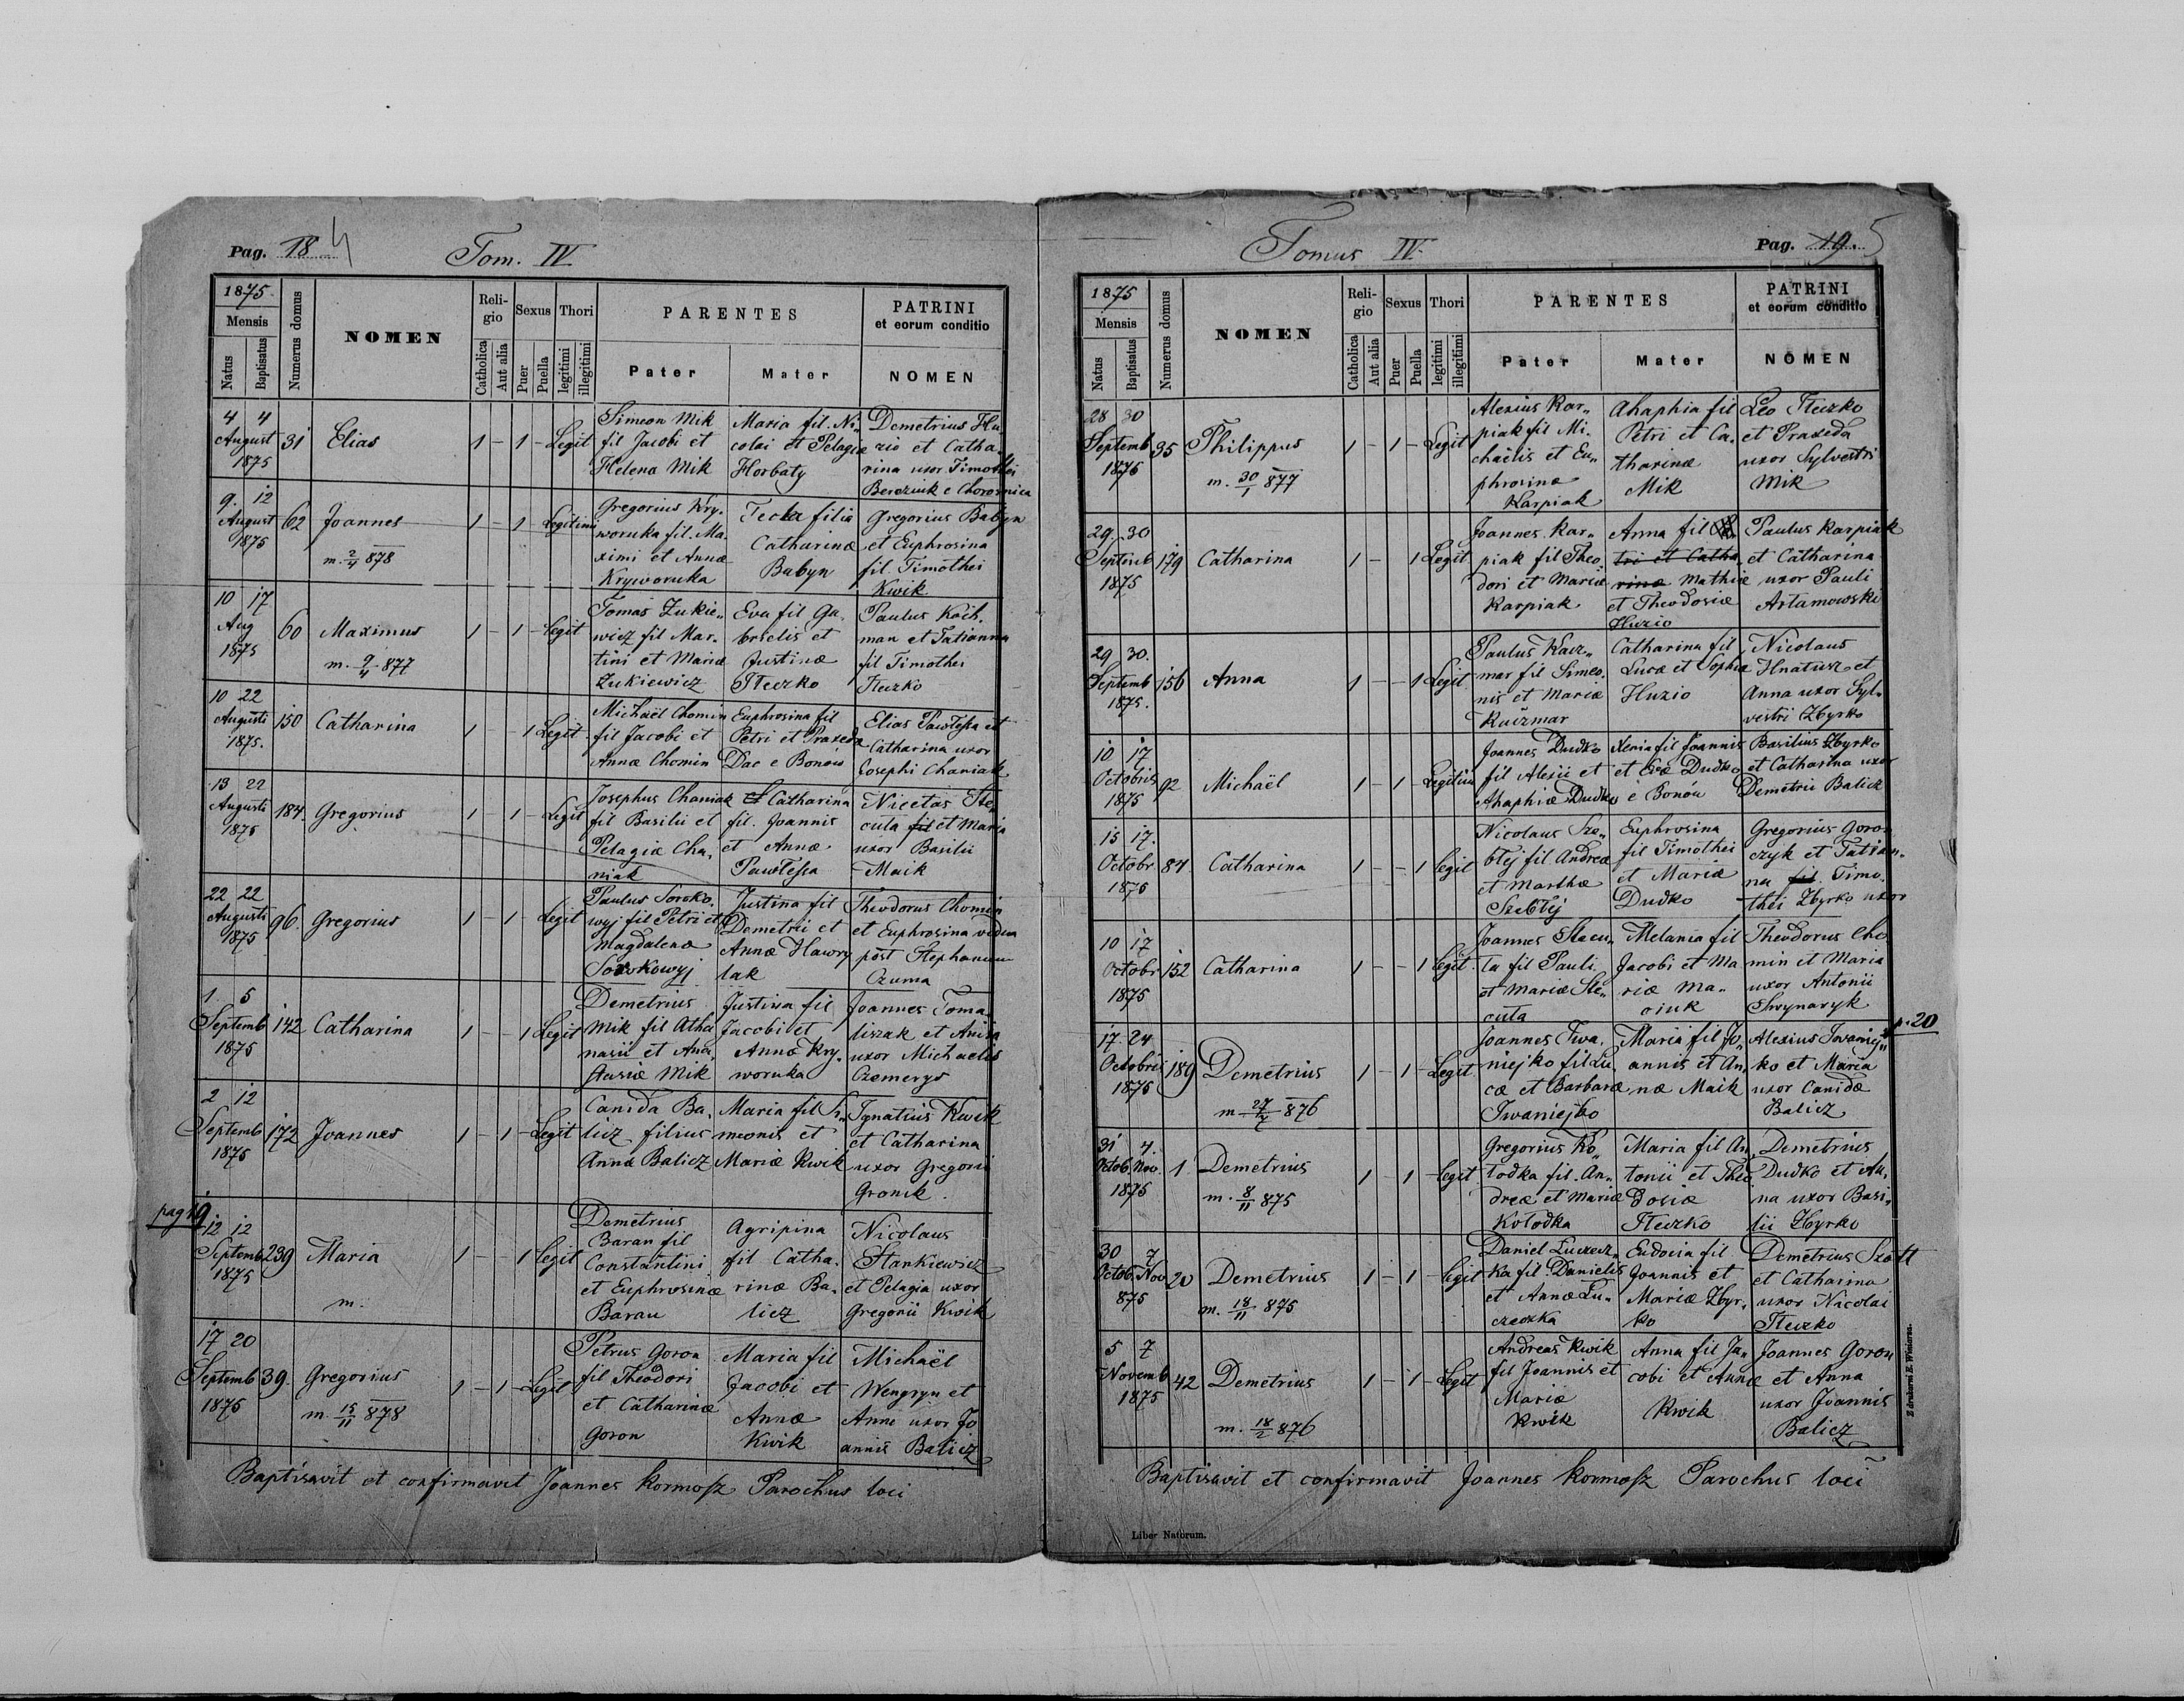 Pag. 18 4
Tom. IV
1875
Mensis
Natus
Baptisatus
Numerus domus
NOMEN
Reli-
gio
Catholica
Aut alia
Sexus
Puer
Puella
Thori
legitimi
illegitimi
PARENTES
Pater
Mater
PATRINI
et eorum conditio
NOMEN
4 4
August
1875
31
Elias
1 – 1 – Legit
Simeon Mik
fil Jacobi et
Helena Mik
Maria fil. Ni„
colai et Pelagiæ
Horbaty
Demetrius Hu
zio et Catha„
rina uxor Timothei
Bereziuk e Chorosnica
9. 12
August
1875
62
Joannes
m. 2/4 878
1 – 1 – Legitimi
Gregorius Kry„
woruka fil. Ma„
ximi et Annæ
Kryworuka
Tecla filia
Catharinæ
Babyn
Gregorius Babyn
et Euphrosina
fil. Timothei
Kwik
10 17
Aug
1875
60
Maximus
m. 9/4 877
1 – 1 – Legit
Tomas Zukie„
wicz fil Mar„
tini et Mariæ
Zukiewicz
Eva fil Ga„
brielis et
Justinæ
Steczko
Paulus Koch„
man et Tatianna
fil Timothei
Steczko
10 22
Augusti
1875.
150
Catharina
1 – – 1 Legit
Michaël Chomin
fil Jacobi et
Annæ Chomin
Euphrosina fil
Petri et Praxeda
Dac e Bonow
Elias Pawlessa et
Catharina uxor
Josephi Chaniak
13 22
Augusti
1875
184.
Gregorius
1 – 1 – Legit
Josephus Chaniak
fil Basilii et
Pelagiæ Cha„
niak
et Catharina
fil. Joannis
et Annæ
Pawlessa
Nicetas Ste„
cuta fil et Maria
uxor Basilii
Maik
22 22
Augusti
1875
96.
Gregorius
1 – 1 – Legit
Paulus Soroko„
wyj fil Petri et
Magdalenæ
Sorokowyj
Justina fil
Demetrii et
Annæ Hawry
lak
Theodorus Chomin
et Euphrosina vidua
post Stephanum
Czuma
1 5
Septemb
1875
142
Catharina
1 – – 1 Legit
Demetrius
Mik fil Atha
nasii et Ana„
stasiæ Mik
Justina fil
Jacobi et
Annæ Kry„
woruka
Joannes Toma
liszak et Anna
uxor Michaelis
Czemerys
2 12
Septemb
1875
172
Joannes
1 – 1 – Legit
Canida Ba„
licz filius
Annæ Balicz
Maria fil Si„
meonis et
Mariæ Kwik
Ignatius Kwik
et Catharina
uxor Gregorii
Gronik.
pag 19
12 12
Septemb
1875
239
Maria
m.
1 – – 1 Legit
Demetrius
Baran fil
Constantini
et Euphrosinæ
Baran
Agripina
fil Catha„
rinæ Ba„
licz
Nicolaus
Stankiewicz
et Pelagia uxor
Gregorii Kwik
17 20
Septemb
1875
39.
Gregorius
m. 15/11 878
1 – 1 – Legit
Petrus Goron
fil Theodori
et Catharinæ
Goron
Maria fil
Jacobi et
Annæ
Kwik
Michaël
Wengryn et
Anna uxor Jo
annis Balicz
Baptisavit et confirmavit Joannes Kormosz Parochus loci
Tomus IV.
Pag. 19. 5
1875
Mensis
Natus
Baptisatus
Numerus domus
NOMEN
Reli-
gio
Catholica
Aut alia
Sexus
Puer
Puella
Thori
legitimi
illegitimi
PARENTES
Pater
Mater
PATRINI
et eorum conditio
NOMEN
28 30
Septemb
1875
35
Philippus
m. 30/1 877
1 – 1 – Legit
Alexius Kar„
piak fil Mi„
chaëlis et Eu„
phrosinæ
Karpiak
Ahaphia fil
Petri et Ca„
tharinæ
Mik
Leo Steczko
et Praxeda
uxor Sylvestri
Mik
29. 30
Septemb
1875
179
Catharina
1 – 1 Legit
Joannes Kar„
piak fil Theo„
dori et Mariæ
Karpiak
Anna fil
tri et Catha„
rinæ Mathiæ
et Theodosiæ
Huzio
Paulus Karpiak
et Catharina
uxor Pauli
Artamowski
29 30.
Septemb
1875.
156
Anna
1 – – 1 Legit
Paulus Kacz„
mar fil Simeo„
nis et Mariæ
Kaczmar
Catharina fil
Lucæ et Sophiæ
Huzio
Nicolaus
Hnatusz et
Anna uxor Syl„
vestri Zbyrko
10 17
Octobris
1875
92
Michaël
1 – 1 – Legitim
Joannes Dudko
fil Alexii et
Ahaphiæ Dudko
Xenia fil Joannis
et Evæ Dudko
e Bonow
Basilius Zbyrko
et Catharina uxor
Demetrii Balick
15 17.
Octobr
1875
84
Catharina
1 – – 1 legit
Nicolaus Sze„
btej fil Andreæ
et Marthæ
Szebtej
Euphrosina
fil Timothei
et Mariæ
Dudko
Gregorius Goro„
czyk et Tatian„
na fil. Timo„
thei Zbyrko uxor
10 17
Octobr
1875
152
Catharina
1 – – 1 legit.
Joannes Stecu„
ta fil Pauli
et Mariæ Ste„
cuta
Melania fil
Jacobi et Ma
riæ Ma„
ciuk
Theodorus Cho
min et Maria
uxor Antonii
Skrynaryk
p. 20
17 24
Octobris
1875
189
Demetrius
m 27/4 876
1 – 1 – Legit
Joannes Iwa„
niejko fil Lu„
cæ et Barbaræ
Iwaniejko
Maria fil Jo„
annis et An„
næ Maik
Alexius Iwaniej„
ko et Maria
uxor Canidæ
Balicz
31 4.
Octob. Nov.
1875
1
Demetrius
m. 8/11 875
1 – 1 – legit
Gregorius Ko„
łodka fil. An„
dreæ et Mariæ
Kołodka
Maria fil An„
tonii et Theo
dosiæ
Steczko
Demetrius
Dudko et An„
na uxor Basi„
lii Zbyrko
30 7
Octob. Nov
875
20
Demetrius
m. 18/11 875
1 – 1 – legit
Daniel Luczecz„
ka fil. Danielis
et Annæ Lu„
czeczka
Eudocia fil
Joannis et
Mariæ Zbyr„
ko
Demetrius Szott
et Catharina
uxor Nicolai
Steczko
5 7
Novemb
1875
42
Demetrius
m. 18/2 876
1 – 1 – Legit
Andreas Kwik
fil Joannis et
Mariæ
Kwik
Anna fil Ja„
cobi et Annæ
Kwik
Joannes Goron
et Anna
uxor Joannis
Balicz
Baptisavit et confirmavit Joannes Kormosz Parochus loci
Liber Natorum.
Z drukarni E. Winiarza.